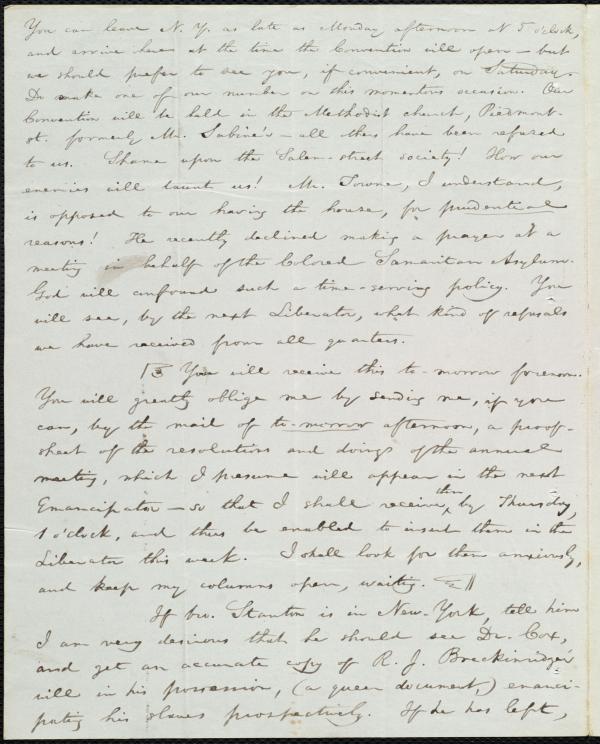 You can leave N. Y. as late as Monday afternoon at 5 o'clock,
and arrive here at the time the Convention will open – but
we should prefer to see you, if convenient, on Saturday.
Do make one of our number on this momentous occasion. Our
Convention will be held in the Methodist church, Piedmont-
st. formerly Mr. Sabine's – all others have been refused
to us. Shame upon the Salem-street society! How our
enemies will taunt us! Mr. Towne, I understand,
is opposed to our having the house, for prudential
reasons! He recently declined making a prayer at a
meeting in behalf of the Colored Samaritan Asylum.
God will confound such a time-serving policy. You
will see, by the next Liberator, what kind of refusals
we have received from all quarters.
☞ You will receive this to-morrow forenoon.
You will greatly oblige me by sending me, if you
can, by the mail of to-morrow afternoon, a proof-
sheet of the resolutions and doings of the annual
meeting, which I presume will appear in the next
Emancipator – so that I shall receive them by Thursday,
1 o'clock, and thus be enabled to insert them in the
Liberator this week. I shall look for them anxiously,
and keep my columns open, waiting. ☜
If bro. Stanton is in New-York, tell him
I am very desirous that he should see Dr. Cox,
and get an accurate copy of R. J. Breckinridge's
will in his possession, (a queer document,) emanci-
pating his slaves prospectively. If he has left,